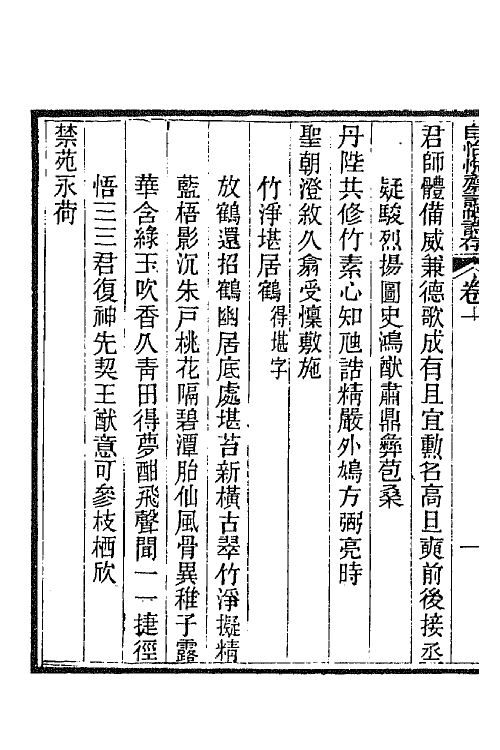 卷十
一
君師體備威兼德歌成有且宜勳名高旦奭前後接丞
疑駿烈揚圖史鴻猷肅鼎彝苞桑
丹陛共修竹素心知虺誥精嚴外鳩方弼亮時
聖朝澄敘久翕受懍敷施
竹淨堪居鶴得堪字
放鶴還招鶴幽居底處堪苔新橫古翠竹淨擬精
藍梧影沉朱戸桃花隔碧潭胎仙風骨異稚子露
華含綠玉吹香久靑田得夢酣飛聲聞一一捷徑
悟三三君復神先契王猷意可參枝栖欣
禁苑永荷